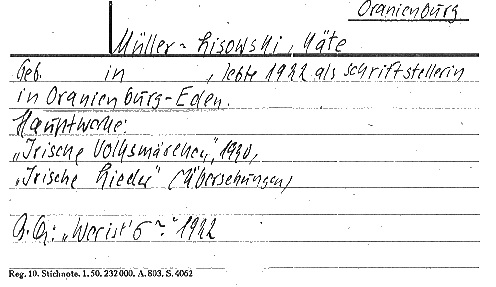 Oranienburg
Müller-Lisowski, Käte
Geb. in , lebte 1922 als Schriftstellerin
in Oranienburg-Eden.
Hauptwerke:
„Irische Volksmärchen", 1920,
„Irische Lieder" (Übersetzungen)
„Wer ist's" 1922
Reg. 10. Stichnote. 1. 50. 232 000. A. 803. S. 4062